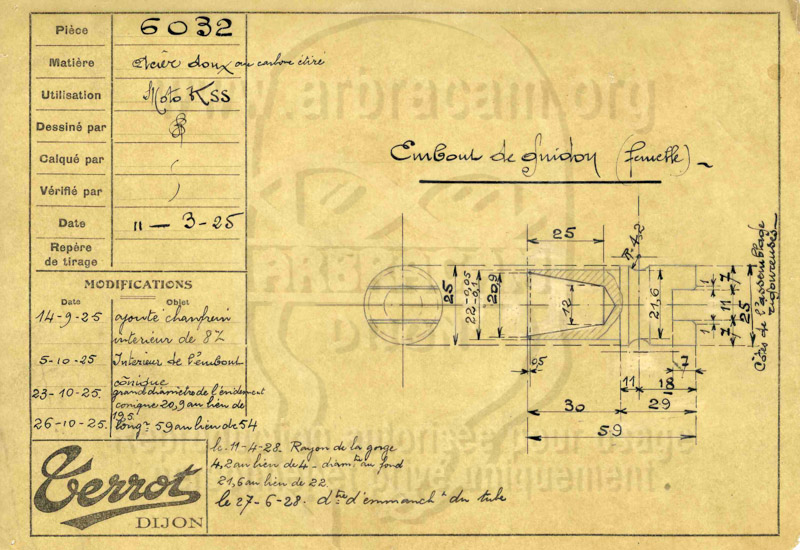 Pièce 6032
Matière Acier doux au carbone étiré
Utilisation Moto KSS
Dessiné par
Calqué par
Vérifié par
Date 11 — 3 - 25
Repère
de tirage
MODIFICATIONS
Date Objet
14-9-25 ajouté chanfrein
intérieur de 8
5-10-25 Intérieur de l'embout
cônique
23-10-25. grand diamètre de l'évidement
conique 20,9 au lieu de
19,5
26-10-25. longr 59 au lieu de 54
Terrot
DIJON
le 11-4-28. Rayon de la gorge
4,2 au lieu de 4 - diamtre au fond
21,6 au lieu de 22
le 27-6-28. dtre d'emmancht du tube
Embout de guidon (femelle)
25
R=4,2
25
22-0,05
-0,1
20,9
12
21,6
1
11
1
7
7
25
Côtés de l'assemblage
rigoureuses
0,5
7
11
18
30
29
59
www.arbracam.org